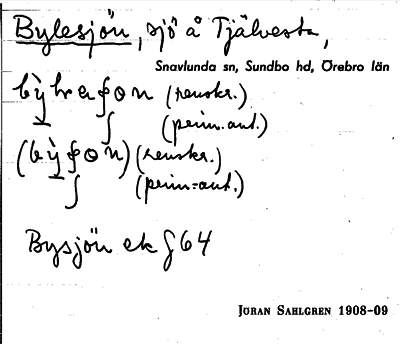 Bylesjön, sjö å Tjälvesta,
Snavlunda sn, Sundbo hd, Örebro län
(renskr.)
ʃ (prim.ant.)
(renskr.)
ʃ (prim.ant.)
Bysjön ek § 64
JÖRAN SAHLGREN 1908-09